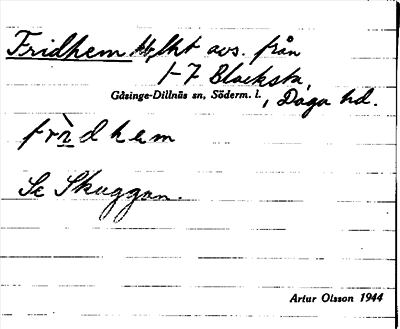 Fridhem lht avs. från
1-7 Blacksta,
Gåsinge-Dillnäs sn, Söderm. l., Daga hd.
fridhem
Se Skuggan.
Artur Olsson 1944